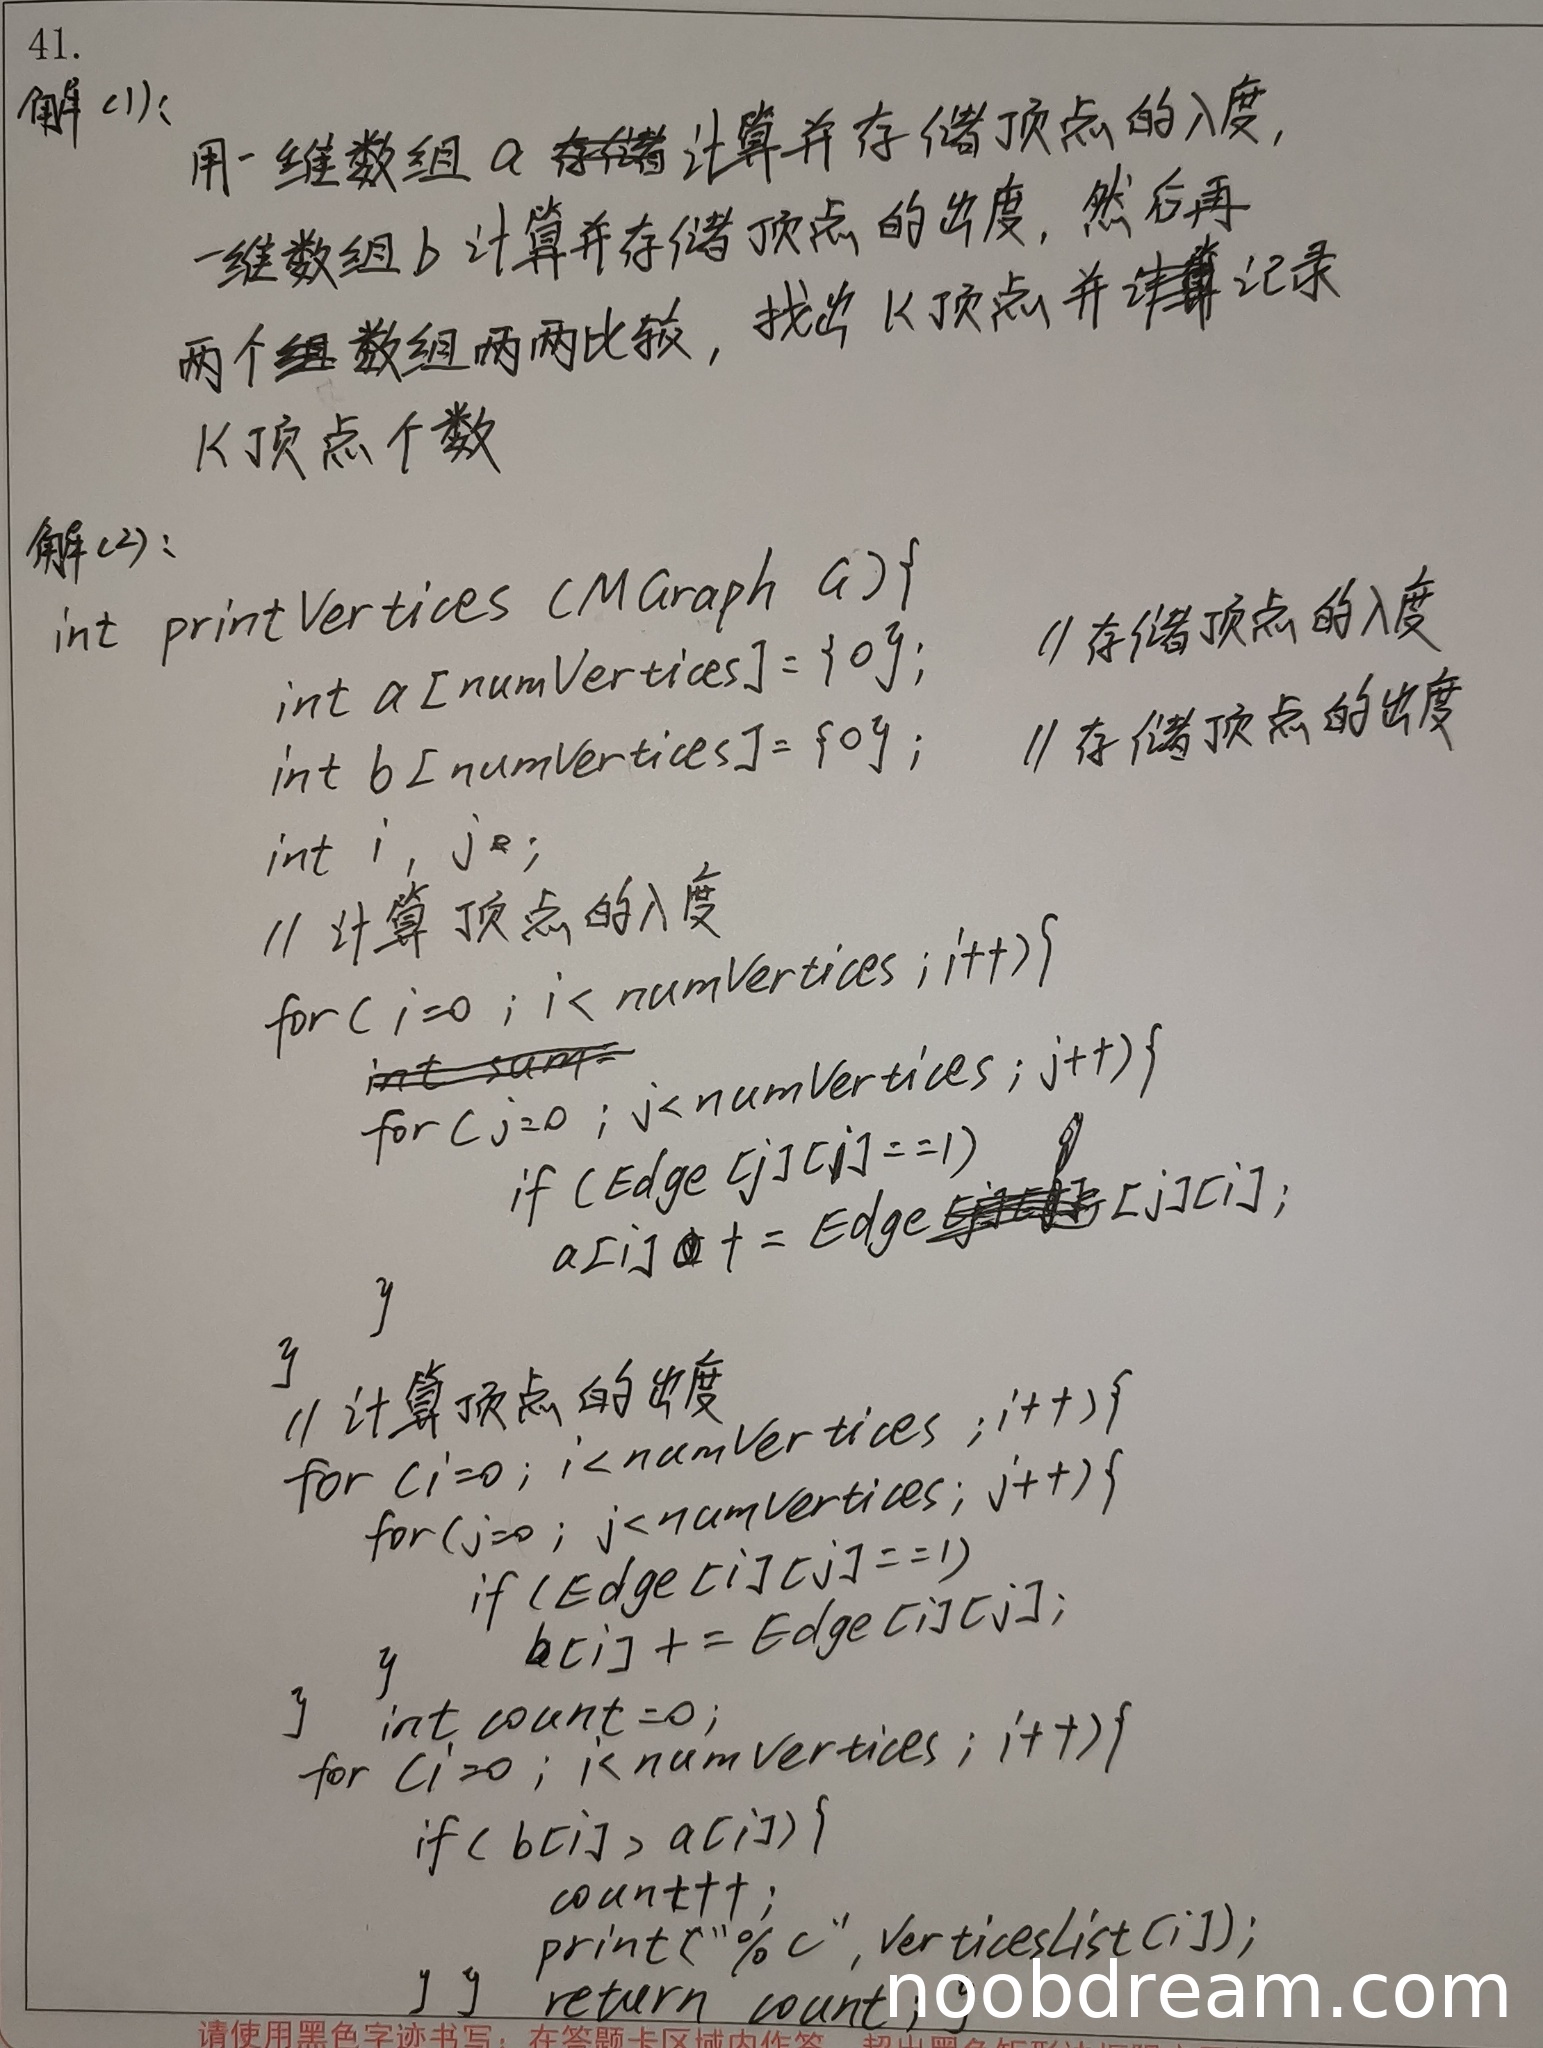 41.
解(1):
用一维数组a 计算并存储顶点的入度,
一维数组b计算并存储顶点的出度, 然后再
两个数组两两比较, 找出K顶点并记录
K顶点个数
解(2):
int printVertices (MGraph G){
int a[numVertices]={0}; //存储顶点的入度
int b[numVertices]={0}; //存储顶点的出度
int i, j;
//计算顶点的入度
for(i=0; i<numVertices; i++){
int sum=
for(j=0; j<numVertices; j++){
if(Edge[j][j]==1)
a[i] += Edge[j][i];
}
}
//计算顶点的出度
for(i=0; i<numVertices; i++){
for(j=0; j<numVertices; j++){
if(Edge[i][j]==1)
b[i] += Edge[i][j];
}
} int count=0;
for(i=0; i<numVertices; i++){
if(b[i]>a[i]){
count++;
print("%c", VerticesList[i]);
} } return count; }
noobdream.com
请使用黑色字迹书写; 在答题卡区域内作答